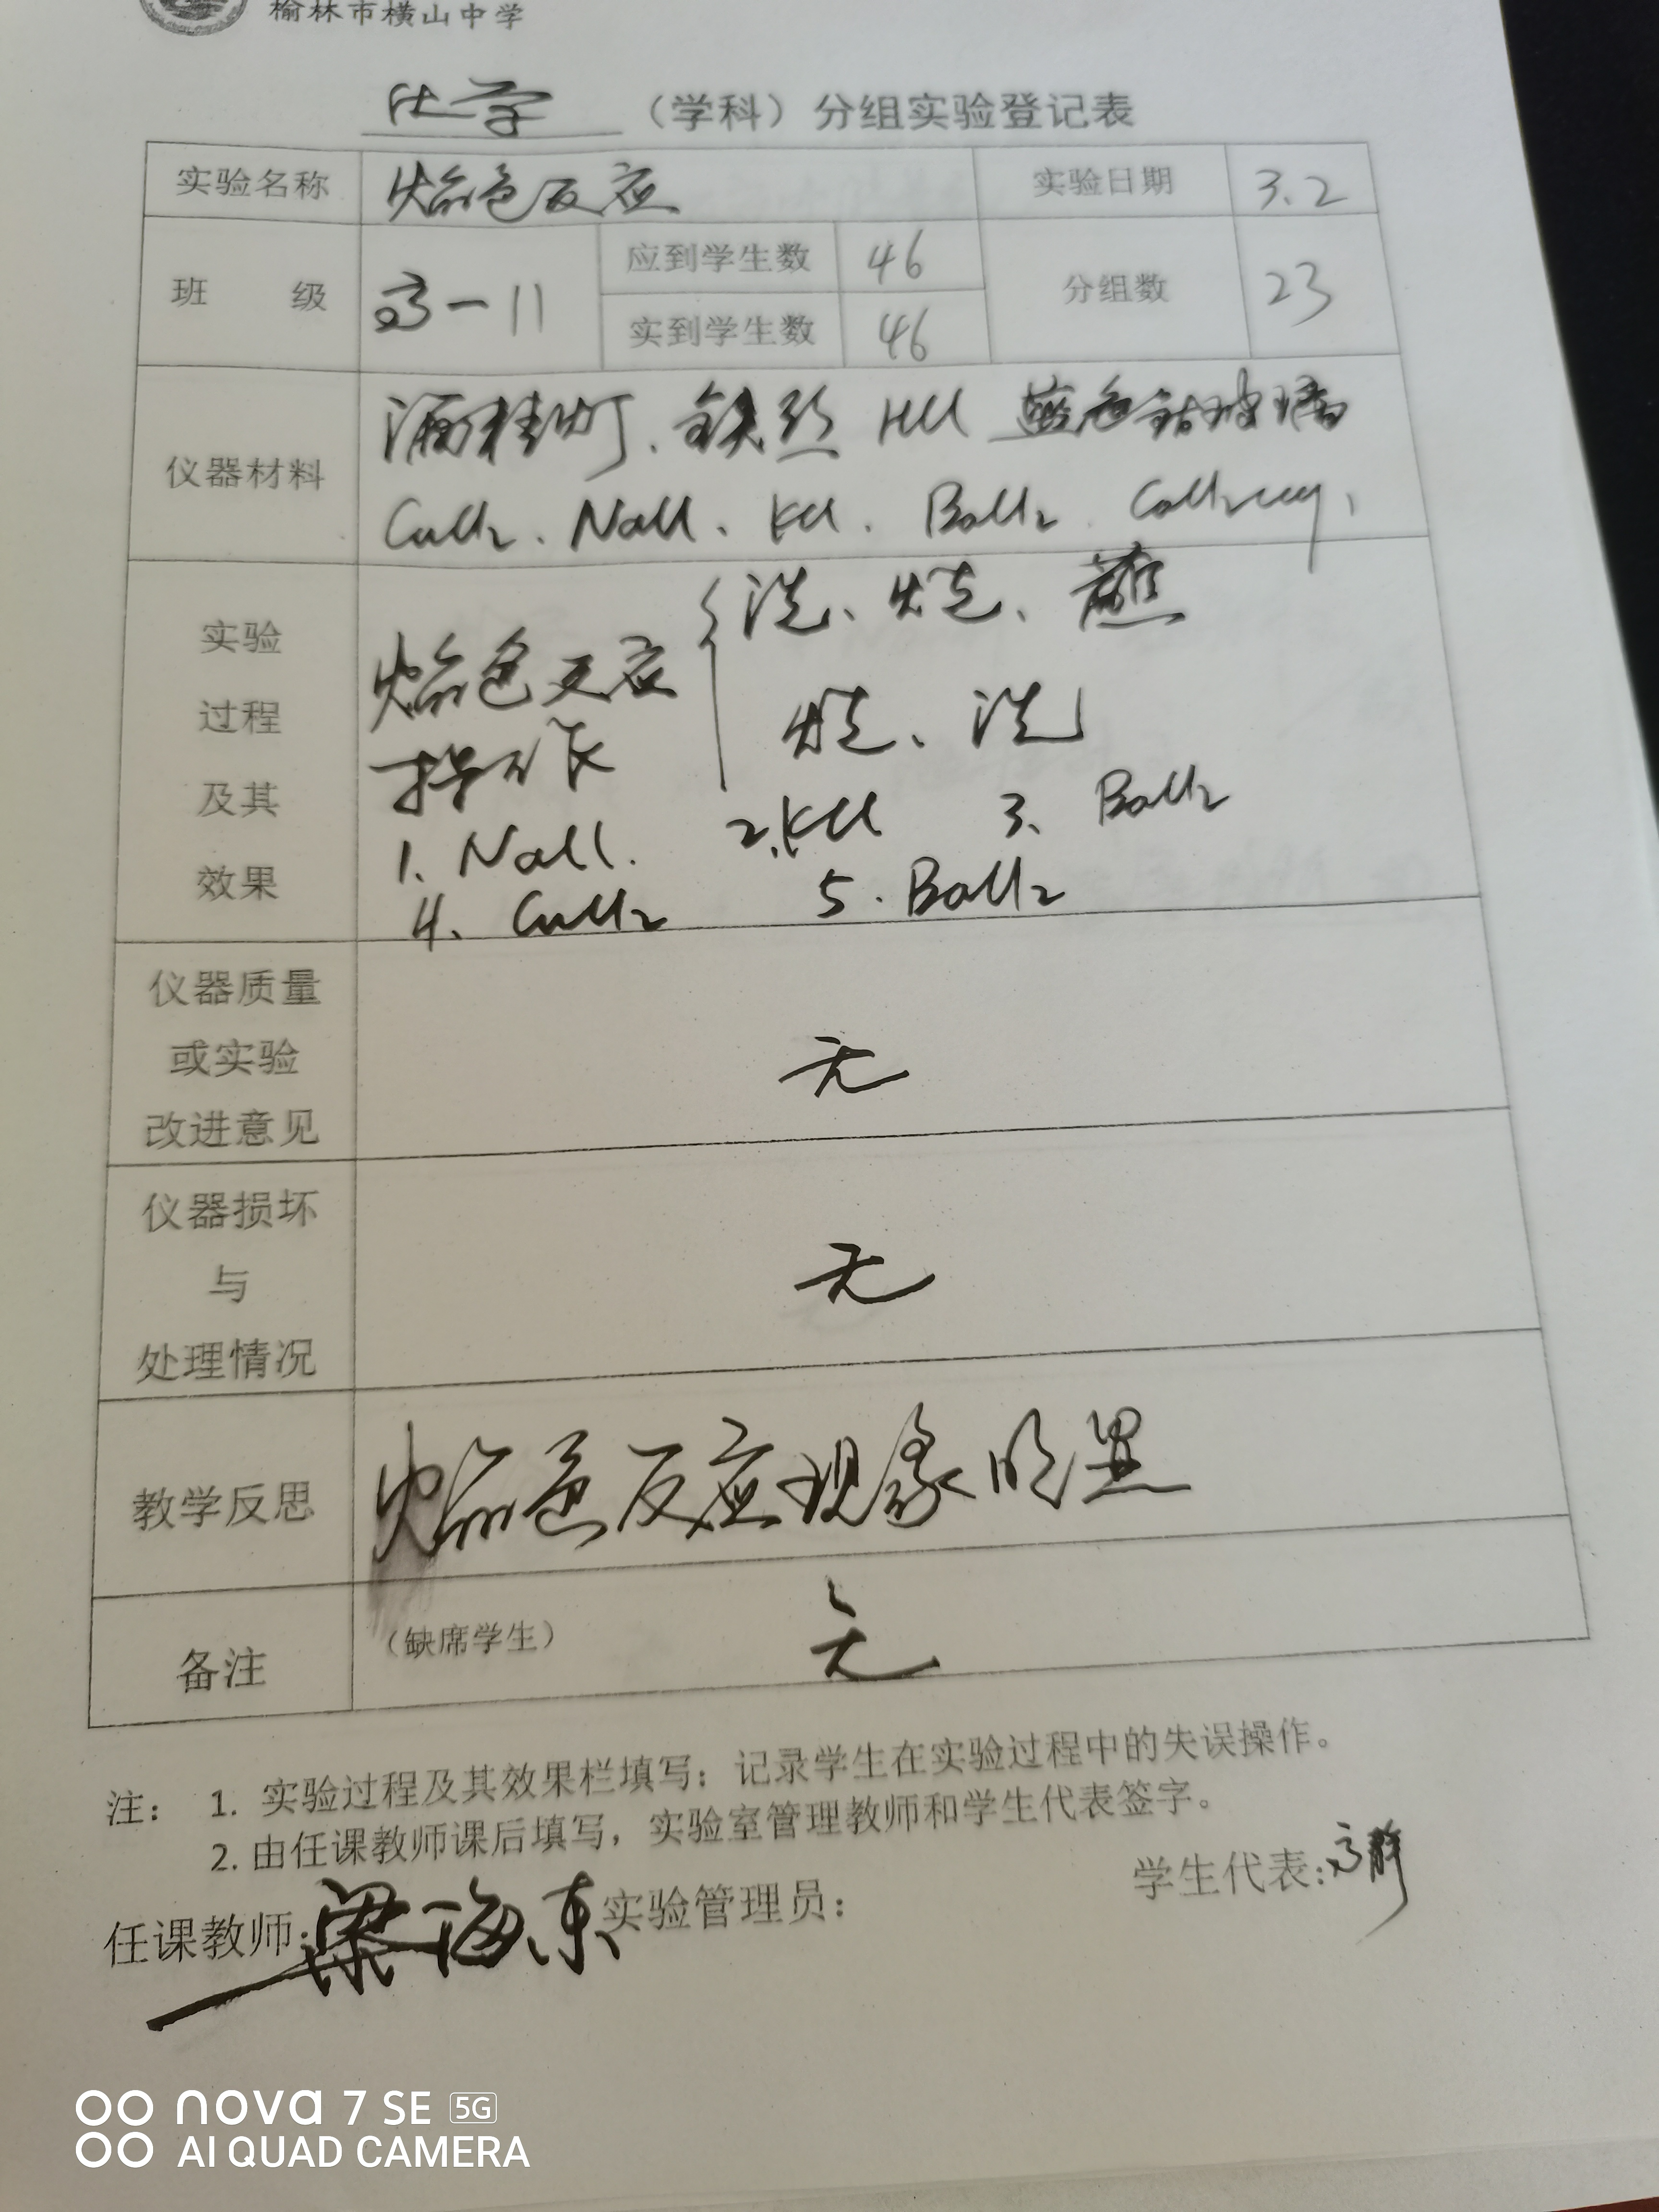 榆林市横山中学
化学（学科）分组实验登记表
实验名称 焰色反应 实验日期 3.2
班 级 高一11 应到学生数 46 分组数 23
实到学生数 46
仪器材料 酒精灯、铁丝 HCl 蓝色钴玻璃
CuCl2、NaCl、KCl、BaCl2、
实验过程及其效果
焰色反应操作 洗、烧、蘸
烧、洗
1. NaCl. 2. KCl 3. BaCl2
4. CuCl2 5. BaCl2
仪器质量
或实验 无
改进意见
仪器损坏
与 无
处理情况
教学反思 焰色反应现象明显
备注 （缺席学生） 无
注： 1. 实验过程及其效果栏填写：记录学生在实验过程中的失误操作。
2. 由任课教师课后填写，实验室管理教师和学生代表签字。
任课教师：梁海东 实验管理员： 学生代表：高静
nova 7 SE 5G
AI QUAD CAMERA